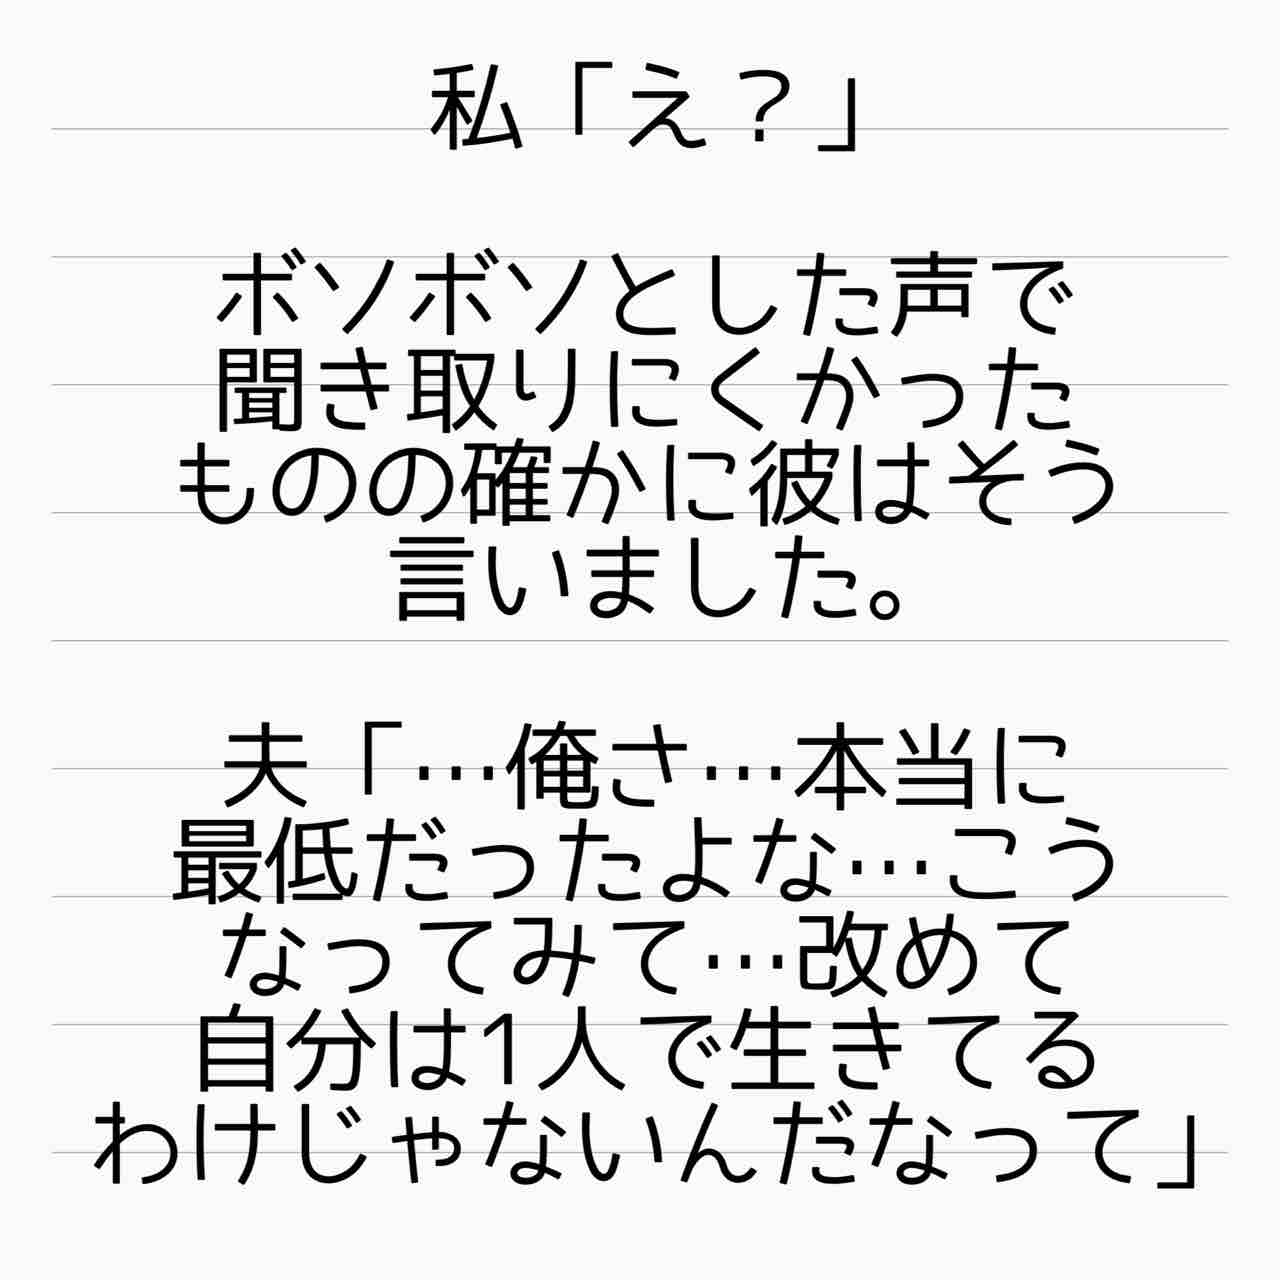 私「え？」
ボソボソとした声で
聞き取りにくかった
ものの確かに彼はそう
言いました。
夫「…俺さ…本当に
最低だったよな…こう
なってみて…改めて
自分は1人で生きてる
わけじゃないんだなって」